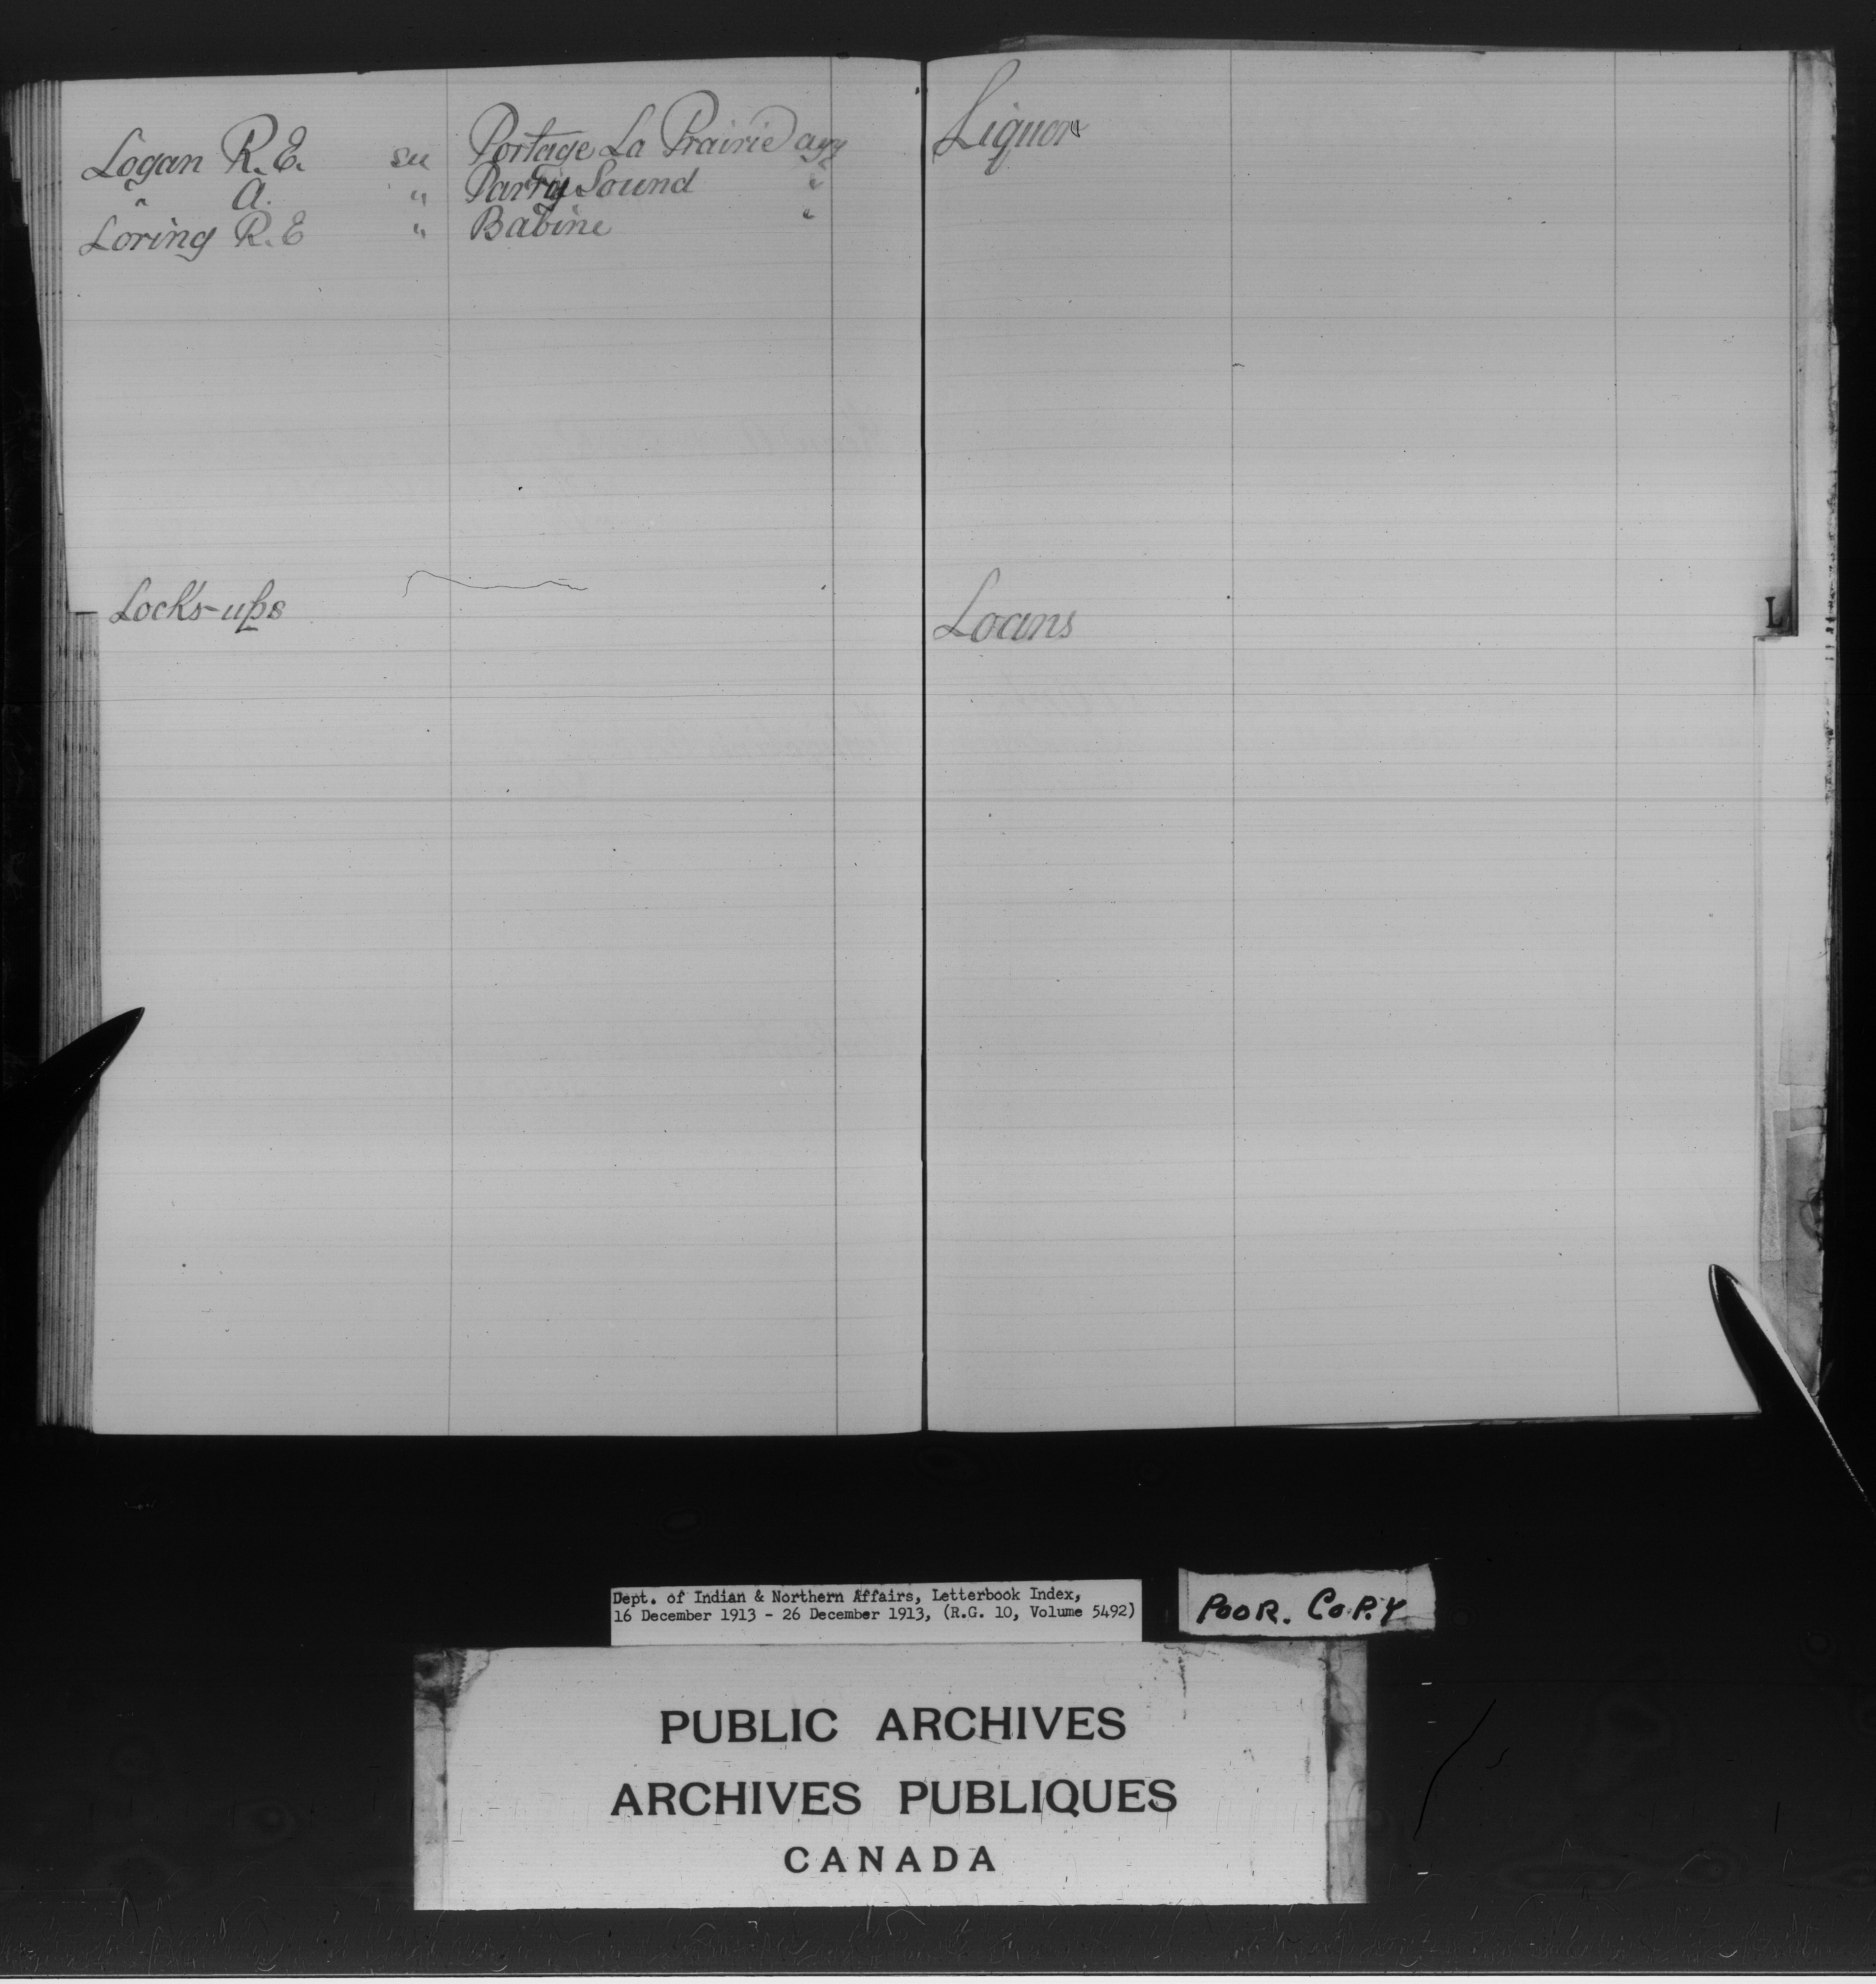 Logan R.E. see Portage La Prairie agy
" A. " Parry Sound "
Loring R.E " Babine "
Locks-ups
Liquor
Loans
L
Dept. of Indian & Northern Affairs, Letterbook Index,
16 December 1913 - 26 December 1913, (R.G. 10, Volume 5492)
POOR. COPY
PUBLIC ARCHIVES
ARCHIVES PUBLIQUES
CANADA